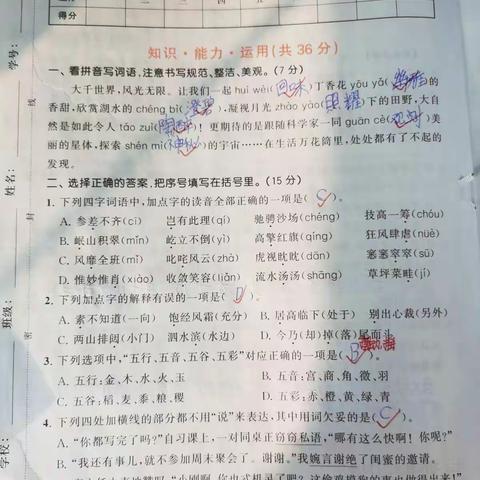 得分
知识·能力·运用(共36分)
一、看拼音写词语,注意书写规范、整洁、美观。(7分)
大千世界,风光无限。让我们一起 huí wèi(回味)丁香花 yōu yǎ(幽雅)的
香甜,欣赏湖水的 chéng bì(澄碧),凝视月光 zhào yào(照耀)下的田野,大自
然是如此令人 táo zuì(陶醉)！更期待的是跟随科学家一同 guān cè(观测)美
丽的星体,探索 shén mì(神秘)的宇宙……在生活万花筒里,处处都有了不起的
发现。
二、选择正确的答案,把序号填写在括号里。(15分)
1. 下列四字词语中,加点字的读音全部正确的一项是( C )。
A. 参差不齐(cī) 岂有此理(qí) 驰骋沙场(chéng) 技高一筹(chóu)
B. 岷山积翠(mǐn) 屹立不倒(yì) 高擎红旗(qíng) 狂风肆虐(nüè)
C. 风靡全班(mǐ) 叱咤风云(zhà) 虎视眈眈(dān) 窸窸窣窣(sū)
D. 惟妙惟肖(xiào) 收敛笑容(liǎn) 流水汤汤(shāng) 草坪菜畦(jí)
2. 下列加点字的解释有误的一项是( D )
A. 素不知道(一向) 饱经风霜(充分) B. 居高临下(处于) 别出心裁(另外)
C. 两山排闼(小门) 泗水滨(水边) D. 今乃(却)掉(落)尾而斗
3. 下列选项中,“五行、五音、五谷、五彩”对应正确的一项是( B )。
A. 五行:金、木、水、火、玉 B. 五音:宫、商、角、徵、羽
C. 五谷:稻、麦、黍、粮、稷 D. 五彩:赤、橙、黄、绿、青
4. 下列四处加横线的部分都不用“说”来表达,其中用词欠妥的是( C )。
A. “你都写完了吗?”自习课上,一对同桌正窃窃私语,“哪有这么快啊！你呢?”
B. “我还有事儿,就不参加周末聚会了。谢谢。”我婉言谢绝了闺蜜的邀请。
学号:
姓名:
班级:
学校:
线
封
密